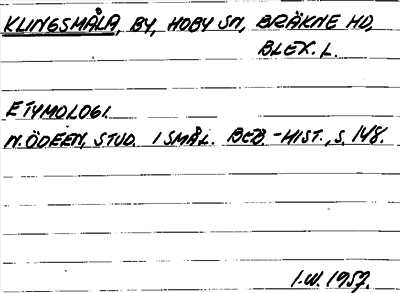 KLINGSMÅLA, BY, HOBY SN, BRÄKNE HD,
BLEK. L.
ETYMOLOGI.
N. ÖDEEN, STUD. I SMÅL. BEB.-HIST., S. 148.
I.W. 1957.